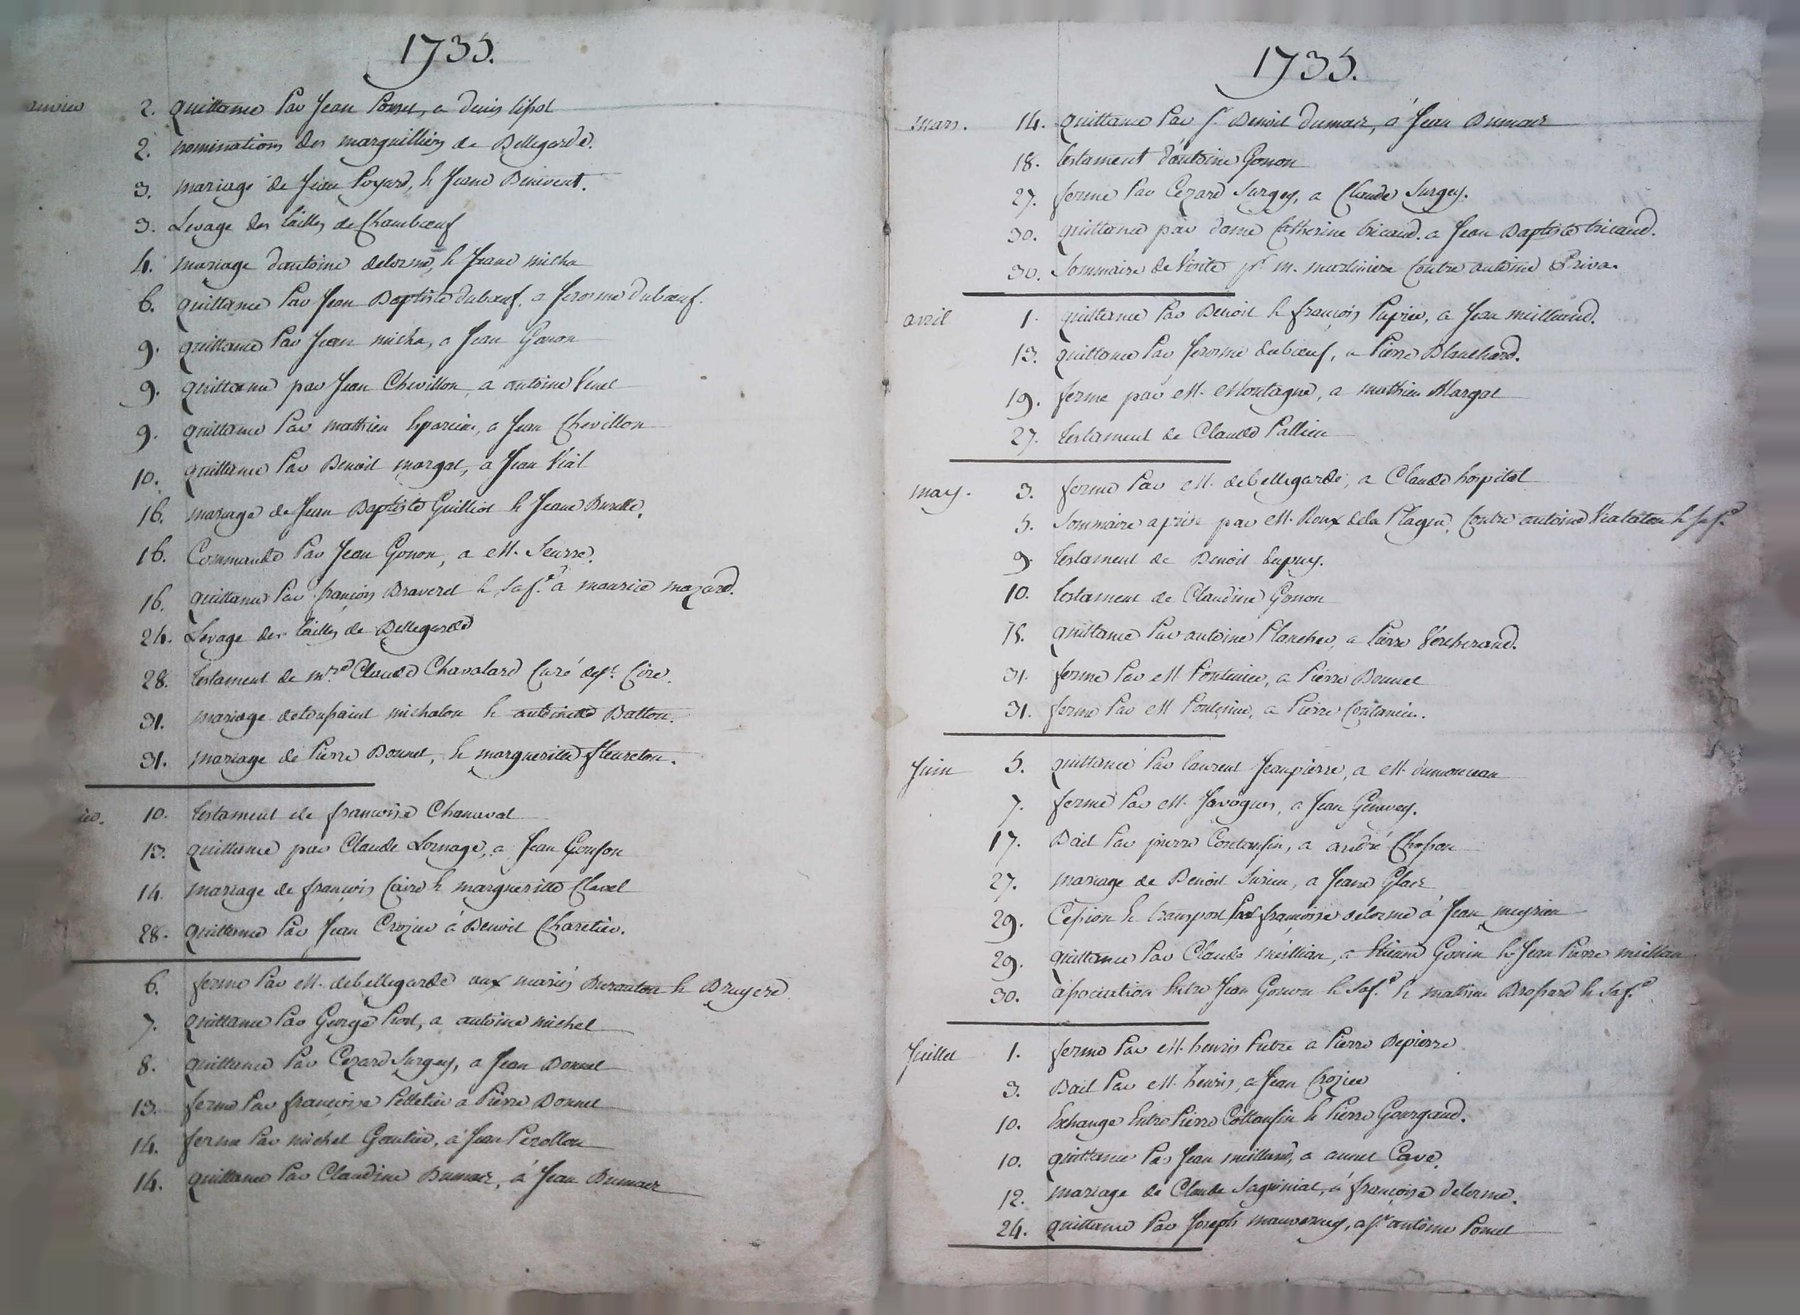 1735.
2. quittance Par Jean Ponset, a denis
2. nominations des marguilliers de Bellegarde.
3. mariage de Jean Poyard, & Jeane Benivent.
3. Levage des tailles de Chambœuf
4. mariage d'antoine delorme, & Jeane micha
6. quittance Par Jean Baptiste dubœuf, a Jerosme dubœuf.
9. quittance Par Jean micha, a Jean Gonon
9. quittance par Jean Chevillon, a antoine
9. quittance Par mathieu a Jean Chevillon
10. quittance Par Benoit margat, a Jean Vial
16. mariage de Jean Baptiste Guilliot & Jeane
16. Commande Par Jean Gonon, a M. Seurre.
16. quittance Par françois Braveret & Sa f.e a maurice mazard.
24. Levage des tailles de Bellegarde
28. testament de m.re Claude Chavalard Curé de St. Cire.
31. mariage de toussaint michalon & antoinette Batton.
31. mariage de Pierre Bonnet, & margueritte fleureton.
10. testament de françoise Chanaval
13. quittance par Claude Lornage, a Jean Goujon
14. mariage de françois Caire & margueritte Clavel
28. quittance Par Jean Crozier à Benoit Charetier.
6. ferme Par M. de bellegarde aux mariés Buranton & Bruyere
7. quittance Par George Prost, a antoine michel
8. quittance Par Cezard Surgey, a Jean Bonnet
13. ferme Par françoise Pelletier a Pierre Bonnet
14. ferme Par michel Gautier, a Jean Perollon
14. quittance Par Claudine Dumair, a Jean Dumair
1735.
mars. 14. quittance Par Sr. Benoit dumair, à Jean Dumair
18. testament d'antoine Gonon
27. ferme Par Cezard Surgey, a Claude Surgey.
30. quittance par dame Catherine tricaud. a Jean Baptiste tricaud.
30. Sommaire de Visite pr. M. martiniere Contre antoine Priva.
avril 1. quittance Par Benoit & françois Papier, a Jean milliand.
13. quittance Par Jerosme dubœuf, a Pierre Blanchard.
19. ferme par M. Montagne, a mathieu Margat
27. testament de Claude Pallieu
may. 3. ferme Par M. de bellegarde, a Claude hospital
5. Sommaire aprise par M. Roux de la Plagne, Contre antoine Viataton & Sa f.e
9. testament de Benoit dupuy.
10. testament de Claudine Gonon
15. quittance Par antoine Plancher, a Pierre
31. ferme Par M. Pontenier, a Pierre Bonnet
31. ferme Par M Pontenier, a Pierre
Juin 5. quittance Par Laurent Jeanpierre, a M. dumonceau
7. ferme Par M. Javogues, a Jean
17. Bail Par pierre Contousin, a andré Chosson
27. mariage de Benoit Surieu, a Jeane
29. Cession & transport Par françoise delorme à Jean meyrieu
29. quittance Par Claude millian, a Etienne Gonin & Jean Pierre millian
30. association Entre Jean Gonon & Sa f.e & mathieu Brossard & Sa f.e
Juillet 1. ferme Par M. henris Putre a Pierre Depierre
3. Bail Par M. henris, a Jean Crozier
10. Echange Entre Pierre Cottousin & Pierre Gourgaud.
10. quittance Par Jean milliand, a annet Cave.
12. mariage de Claude Sagninial, à françoise delorme.
24. quittance Par Joseph mauverney, a Sr. antoine Ponset